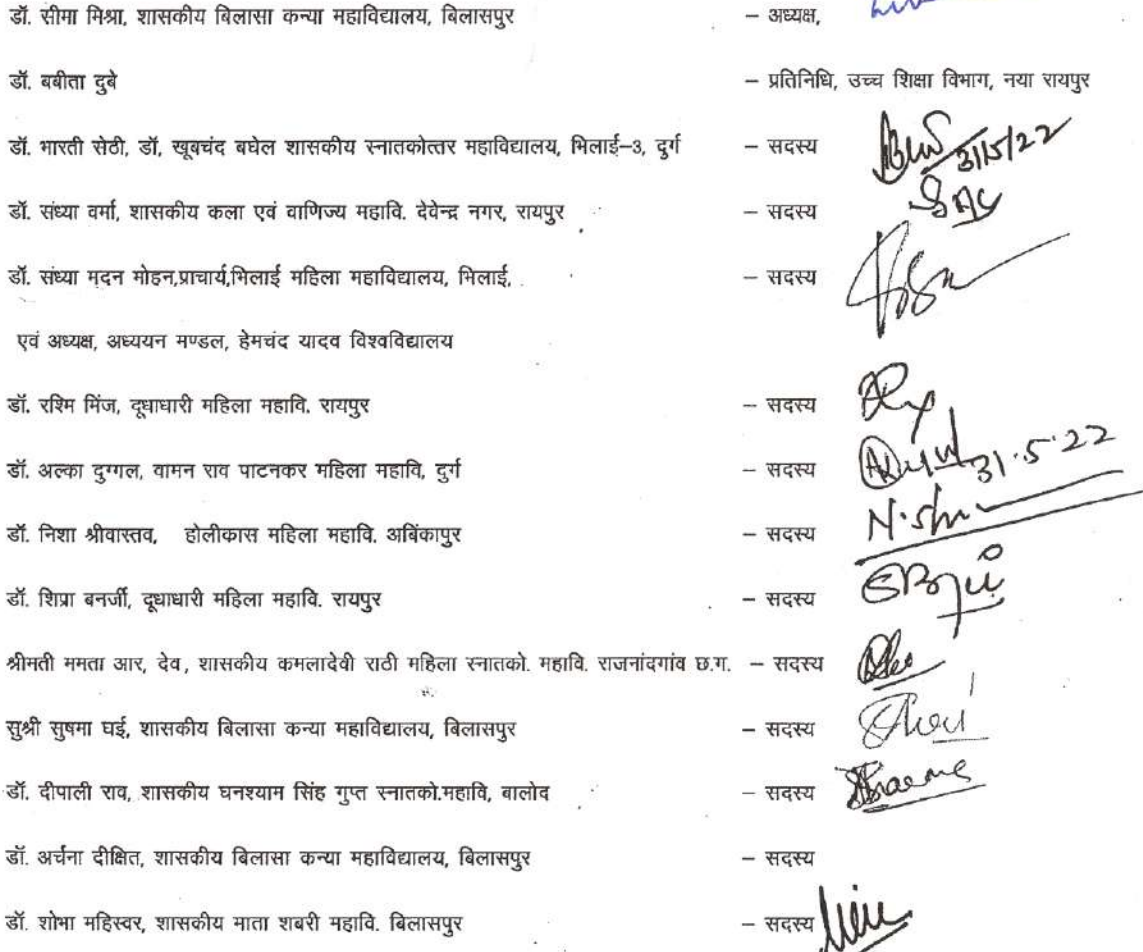 डॉ. सीमा मिश्रा, शासकीय बिलासा कन्या महाविद्यालय, बिलासपुर – अध्यक्ष,
डॉ. बबीता दुबे – प्रतिनिधि, उच्च शिक्षा विभाग, नया रायपुर
डॉ. भारती सेठी, डॉ, खूबचंद बघेल शासकीय स्नातकोत्तर महाविद्यालय, भिलाई–3, दुर्ग – सदस्य 31/5/22
डॉ. संध्या वर्मा, शासकीय कला एवं वाणिज्य महावि. देवेन्द्र नगर, रायपुर – सदस्य
डॉ. संध्या मदन मोहन,प्राचार्य,भिलाई महिला महाविद्यालय, भिलाई, – सदस्य
एवं अध्यक्ष, अध्ययन मण्डल, हेमचंद यादव विश्वविद्यालय
डॉ. रश्मि मिंज, दूधाधारी महिला महावि. रायपुर – सदस्य
डॉ. अल्का दुग्गल, वामन राव पाटनकर महिला महावि, दुर्ग – सदस्य 31.5.22
डॉ. निशा श्रीवास्तव, होलीकास महिला महावि. अबिंकापुर – सदस्य
डॉ. शिप्रा बनर्जी, दूधाधारी महिला महावि. रायपुर – सदस्य
श्रीमती ममता आर, देव, शासकीय कमलादेवी राठी महिला स्नातको. महावि. राजनांदगांव छ.ग. – सदस्य
सुश्री सुषमा घई, शासकीय बिलासा कन्या महाविद्यालय, बिलासपुर – सदस्य
डॉ. दीपाली राव, शासकीय घनश्याम सिंह गुप्त स्नातको.महावि, बालोद – सदस्य
डॉ. अर्चना दीक्षित, शासकीय बिलासा कन्या महाविद्यालय, बिलासपुर – सदस्य
डॉ. शोभा महिस्वर, शासकीय माता शबरी महावि. बिलासपुर – सदस्य